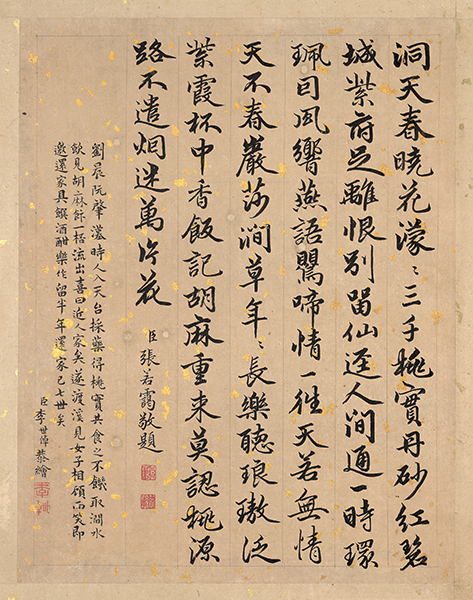 洞天春曉花濛〻三千桃實丹砂紅碧
城紫府足離恨別留仙逕人間通一時環
珮回風響燕語鶯啼情一往天若無情
天不春巖莎澗草年〻長樂聽琅璈泛
紫霞杯中香飯記胡麻重来莫認桃源
路不遣烟迷萬片花
臣張若靄敬題
劉晨阮肇漢時人入天台採藥得桃實共食之不饑取澗水
飲見胡麻飯一桮流出喜曰近人家矣遂渡溪見女子相顧而笑即
邀還家具饌酒酣樂作留半年還家已七世矣
臣李世倬恭繪